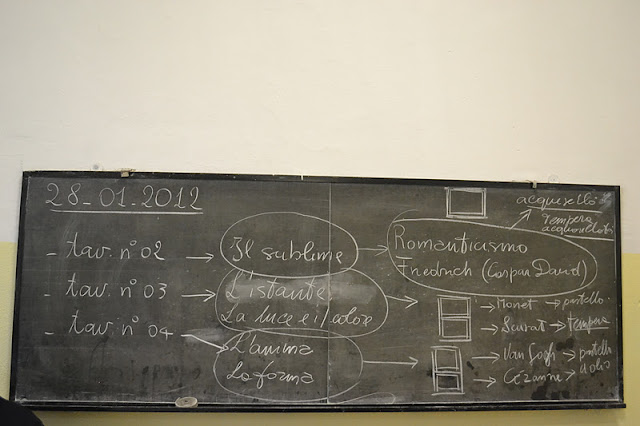 28-01-2012
acquerello
Tempera
acquerellabi
- tav. n° 02 → Il sublime → Romanticismo
Friedrich (Caspar David)
- tav. n° 03 → L'istante
La luce e il colore
→ Monet → pastello
→ Seurat → tempera
- tav. n° 04 → L'anima
La forma
→ Van Gogh → pastello
→ Cézanne → d olio